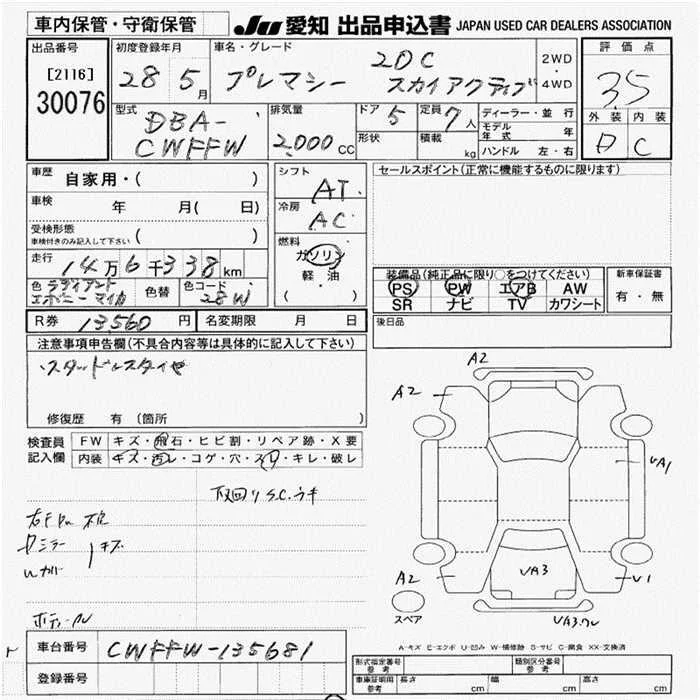 車内保管・守衛保管 JU 愛知 出品申込書 JAPAN USED CAR DEALERS ASSOCIATION
出品番号 初度登録年月 車名・グレード 評価点
[2116] 28 5月 プレマシー 20C スカイアクティブ 2WD・4WD 3.5
30076
型式 DBA-CWFFW 排気量 2000CC ドア 5 定員 7人 ディーラー・並行 外装 内装
形状 積載 kg モデル年式 年 ハンドル 左・右 D C
車歴 自家用・( ) シフト AT セールスポイント(正常に機能するものに限ります)
車検 年 月( 日) 冷房 AC
受検形態 ( )
車検付きのみ記入して下さい
燃料 ガソリン 軽・油 ( )
走行 14万6千338km
装備品(純正品に限り○をつけてください) 新車保証書
PS PW エアB AW 有・無
SR ナビ TV カワシート
色 ラディアントエボニーマイカ 色替 色コード 28W
後日品
R券 13560円 名変期限 月 日
注意事項申告欄(不具合内容等は具体的に記入して下さい)
スタッドレスタイヤ
修復歴 有 (箇所 )
検査員記入欄 FW キズ・飛石・ヒビ割・リペア跡・X要
内装 キズ・汚レ・コゲ・穴・スレ・キレ・破レ
A2
A2
VA1
A2
VA3
V1
VA3
スペア
A-キズ E-エクボ U-凹み W-補修跡 S-サビ C-腐食 XX-交換済
車台番号 CWFFW-135681
登録番号
形式指定番号参考 類別区分番号参考
車庫証明用参考 長さ cm 幅 cm 高さ cm